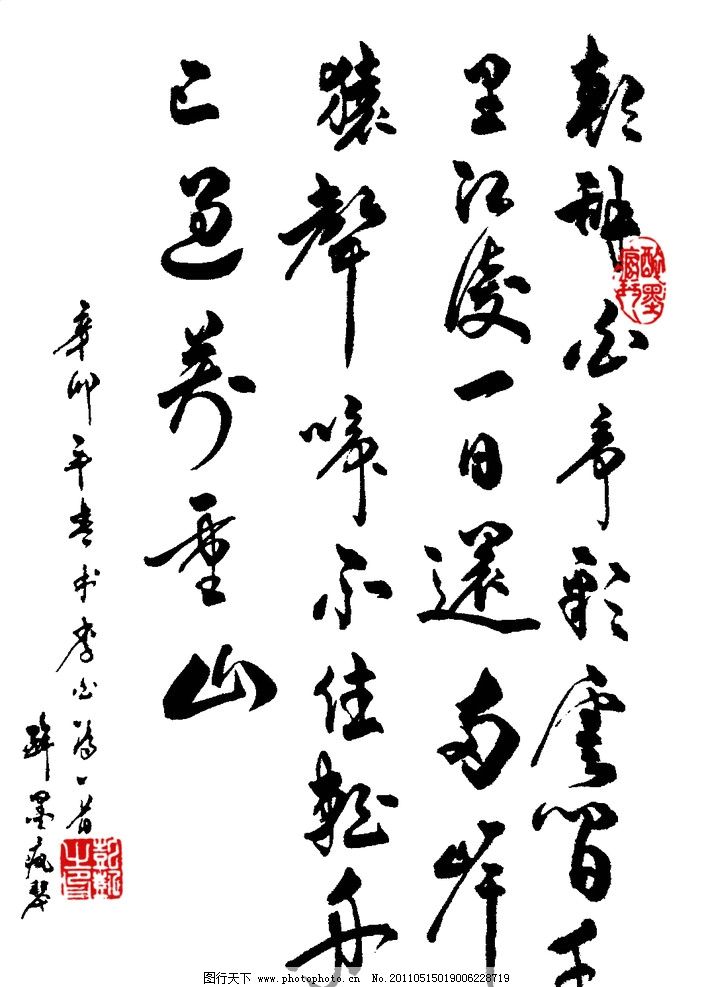 朝辞白帝彩雲間千
里江陵一日還兩岸
猿聲啼不住輕舟
已過萬重山
辛卯年春書李白詩一首
醉墨瘋
图行天下 www.photophoto.cn No.20110515019006228719